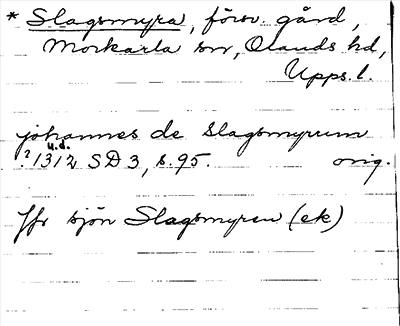 * Slagsmyra, försv. gård,
Morkarla sn, Olands hd,
Upps. l.
johannes de slagsmyrum
u.d.
? 1312 SD 3, s. 95. orig.
Jfr sjön Slagsmyren (ek)